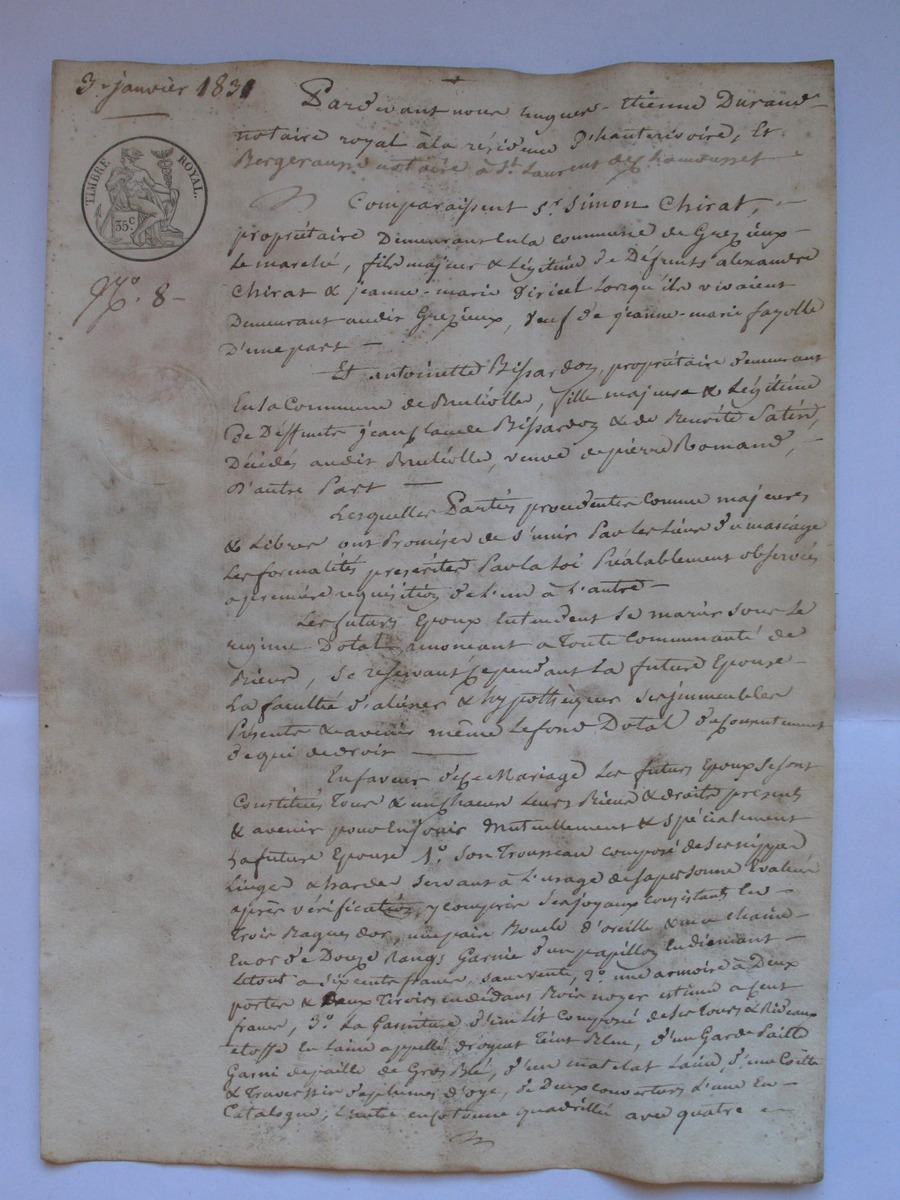 3 janvier 1831
TIMBRE ROYAL.
35 c
N.º 8
Pardevant nous hugues-etienne Durand
notaire royal à la résidence d'hauterivoire, Et
notaire à St Laurent de Chamousset
Comparaissent Sr Simon Chirat,
propriétaire Demeurant en la commune de Grezieux
Le marché, fils majeur & Légitime de Deffunts alexandre
Chirat & jeanne-marie Lorsqu'ils vivaient
Demeurant audit Grezieux, Veuf de jeanne-marie fayolle
D'une part
Et antoinette Bissardon, propriétaire demeurant
En la Commune de Brulliolle, fille majeure & Légitime
de Deffunts jean claude Bissardon & de Benoite Satin,
Décédés audit Brulliolle, veuve de pierre Romand,
D'autre Part
Lesquelles Parties procédantes Comme majeures
& Libres ont Promises de s'unir Par les Liens du mariage
Les formalités prescrites Par la Loi Préalablement observées
a première réquisition de L'un à L'autre
Les futurs Epoux Entendent se marier sous Le
régime Dotal renoncant a Toute Communauté de
Biens, se reservant Cependant La future Epouse
La faculté d'aliéner & hypothéquer ses immeubles
Présents & avenir même Le fond Dotal du Consentement
de qui de droit
En faveur de Ce Mariage Les futurs Epoux se sont
Constitués Tous & un chacun Leurs Biens & droits présents
& avenir pour En jouir Mutuellement & spécialement
La future Epouse 1.º Son Trousseau composé de ses nippes
Linge & hardes servant à L'usage de sa personne Evalués
après vérification, y compris ses joyaux Consistants En
Trois Bagues d'or, une pair Boucle d'oreille & une chaine
En or de Douze Rangs Garnie d'un papillon En diamant
Le tout a six cents francs, sans vente, 2.º une armoire à Deux
portes & Deux Tiroirs en dedans Bois noyer estimé a Cent
francs, 3.º La Garniture d'un Lit Composé de ses Tours & Rideaux
étoffe En Laine appellé droguet Teint Bleu, d'un Garde Paille
Garni de paille de Gros Blé, d'un matelat Laine, d'une Coitte
& Traversier de plumes d'oye, de Deux couvertures L'une En
Catalogne, L'autre en cotonne quadrillée avec quatre